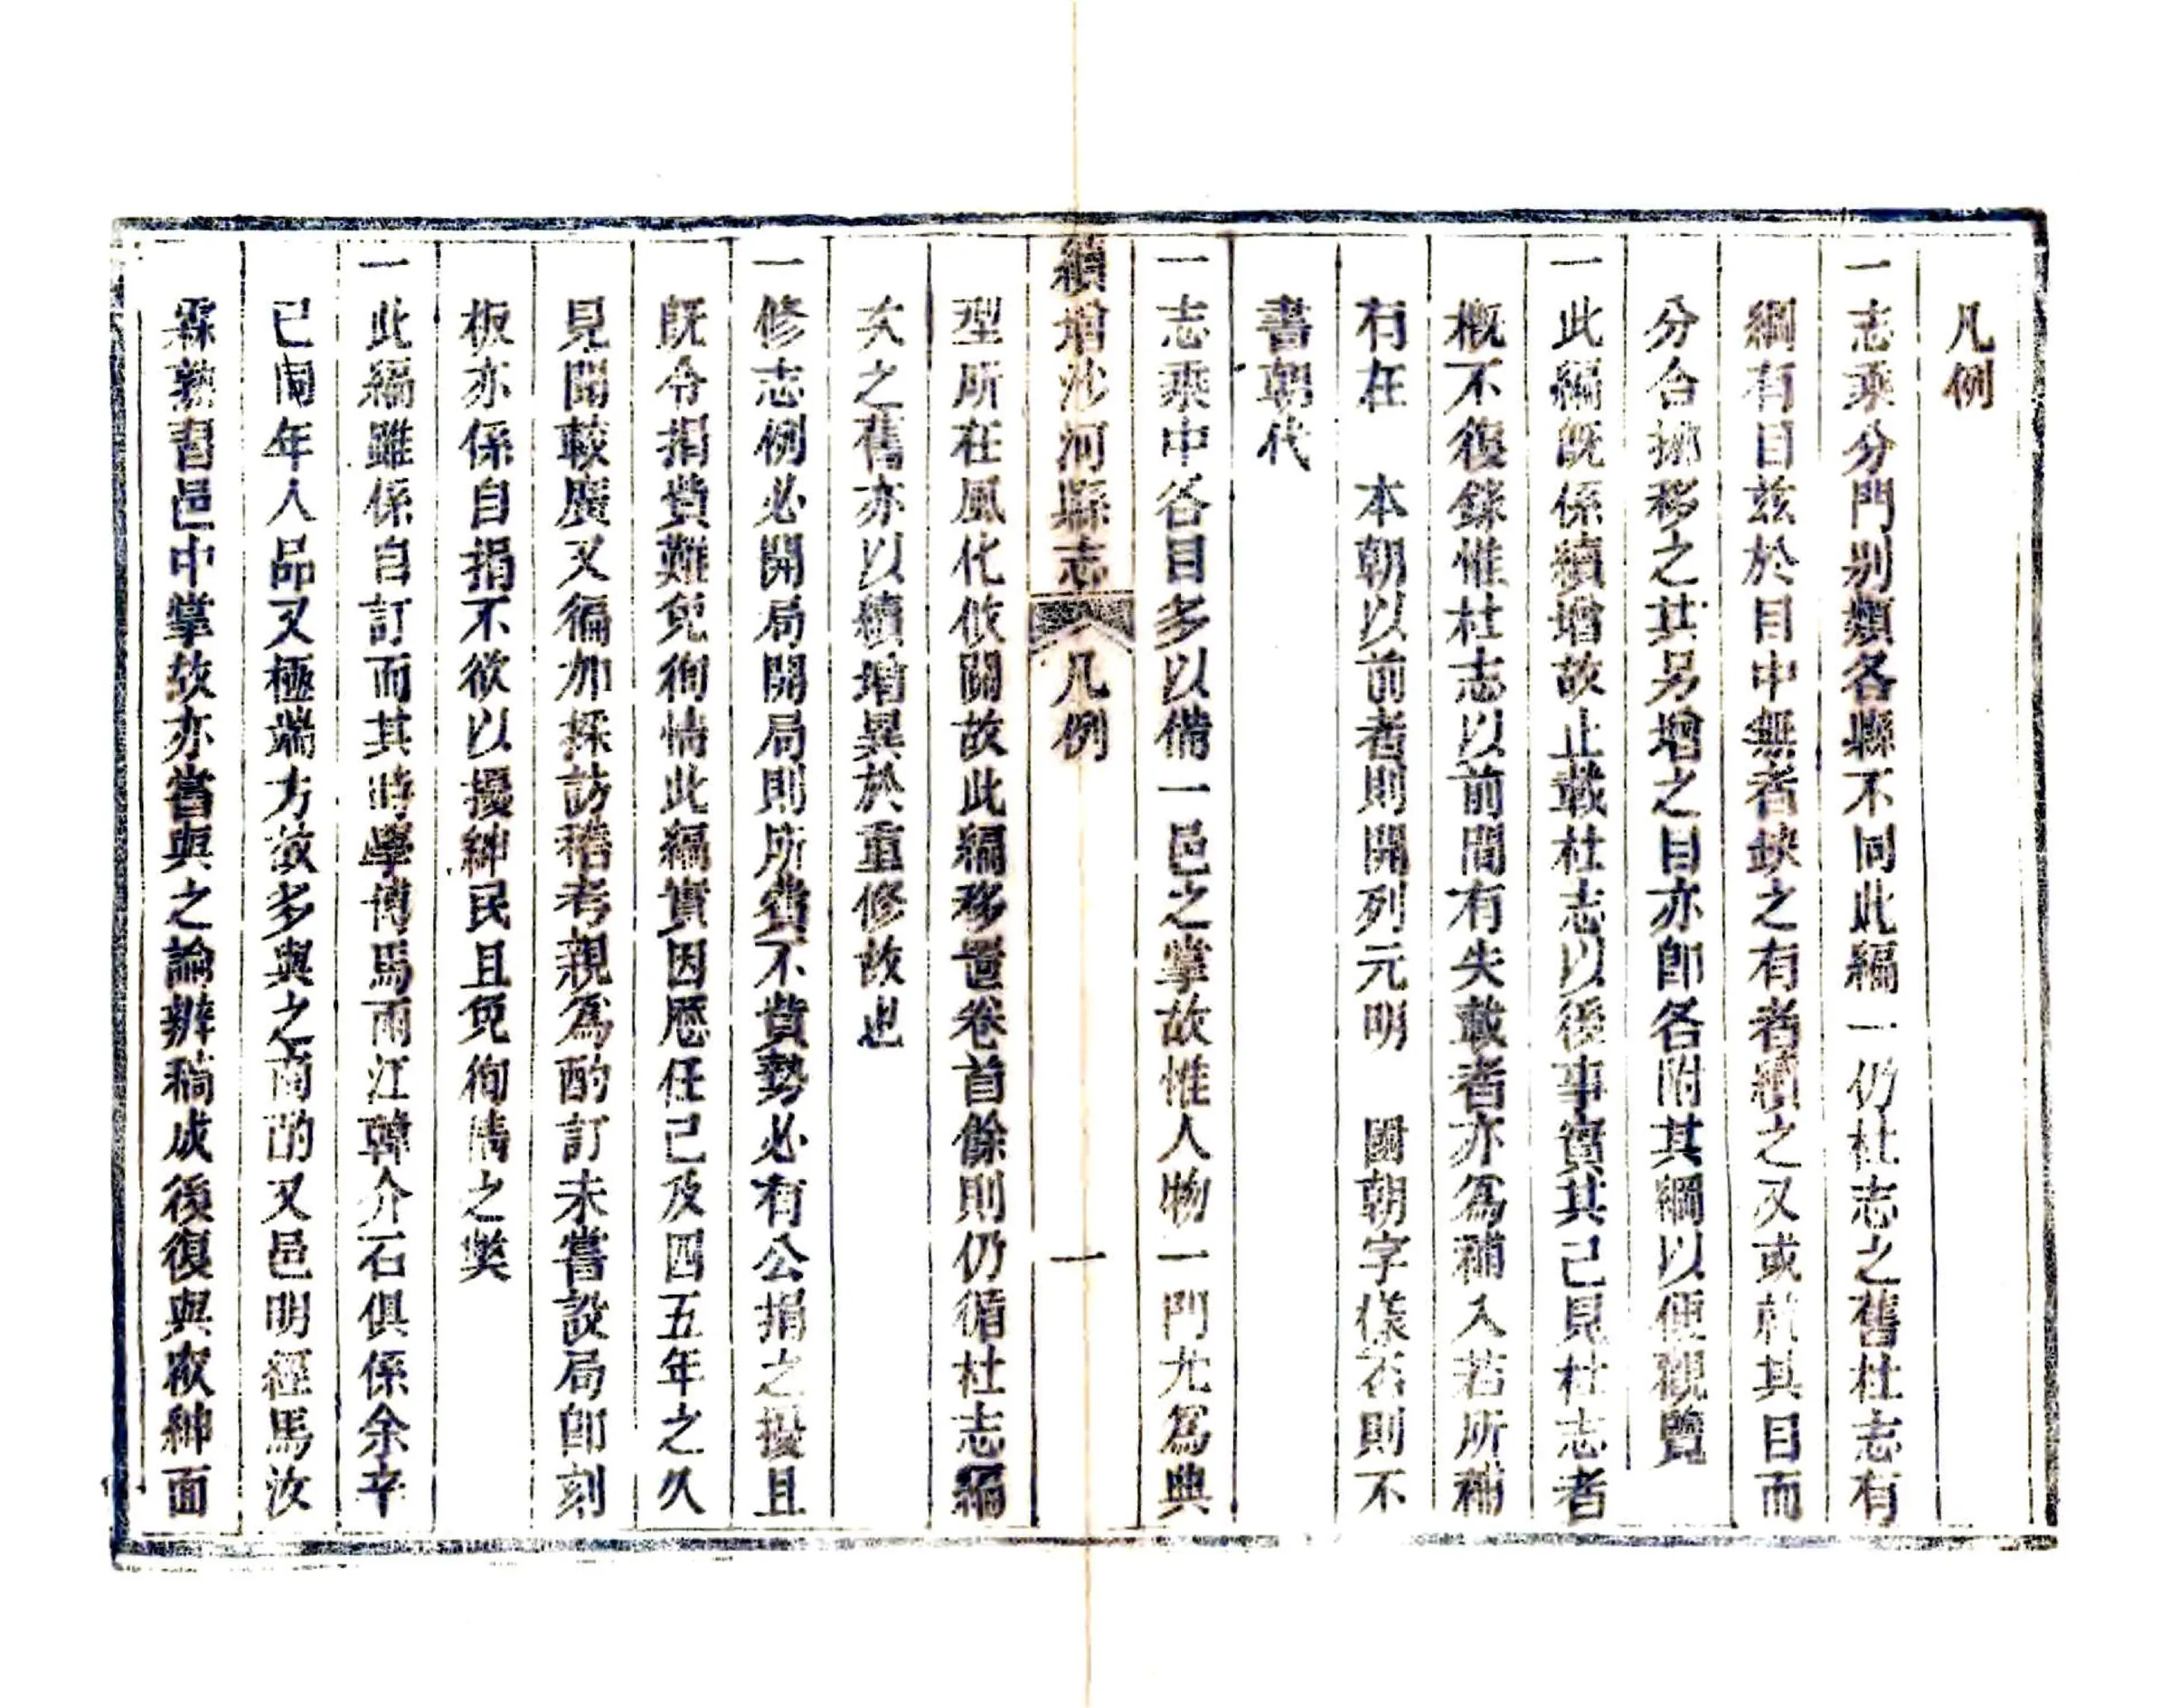 凡例
一志乘分門別類各縣不同此編一仍杜志之舊杜志有
綱有目茲於目中無者缺之有者續之又或於其目而
分合挪移之其另增之目亦卽各附其綱以便觀覽
一此編旣係續增故止載杜志以後事實其已見杜志者
槪不復錄惟杜志以前間有失載者亦爲補入若所補
有在　本朝以前者則開列元明　國朝字樣否則不
書朝代
一志乘中各目多以備一邑之掌故惟人物一門尤爲典
型所在風化攸關故此編移置卷首餘則仍循杜志編
次之舊亦以續增異於重修故也
續增沙河縣志　凡例　一
一修志例必開局開局則所費不貲勢必有公捐之擾且
旣令捐貲難免徇情此編實因歷任已及四五年之久
見聞較廣又徧加採訪稽考親爲酌訂未嘗設局卽刻
板亦係自捐不欲以擾紳民且免徇情之獘
一此編雖係自訂而其時學博馬雨江韓介石俱係余辛
巳同年人品又極端方故多與之商酌又邑明經馬汝
霖熟習邑中掌故亦嘗與之論辨稿成後復與衆紳面